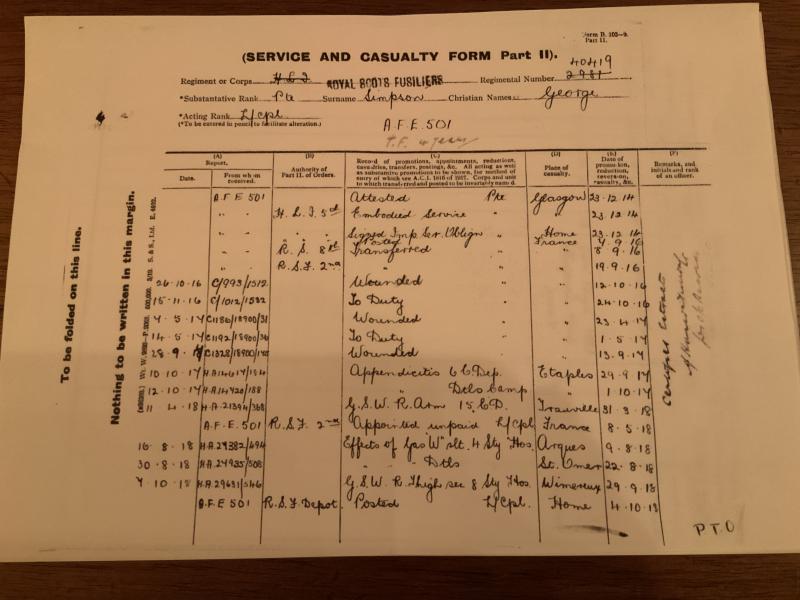 Form B. 103-9.
Part II.
(SERVICE AND CASUALTY FORM Part II).
40419
Regiment or Corps H.L.I. ROYAL SCOTS FUSILIERS Regimental Number 2981
*Substantive Rank Pte Surname Simpson Christian Names George
*Acting Rank L/Cpl
(*To be entered in pencil to facilitate alteration.)
A.F.E. 501
T.F. 4 years
To be folded on this line.
Nothing to be written in this margin.
(A) Report. (B) (C) (D) (E) (F)
Date. From whom received. Authority of Part II. of Orders. Record of promotions, appointments, reductions, casualties, transfers, postings, &c. All acting as well as substantive promotions to be shown, for method of entry of which see A.C.I. 1816 of 1917. Corps and unit to which transferred and posted to be invariably named. Place of casualty. Date of promotion, reduction, reversion, casualty, &c. Remarks, and initials and rank of an officer.
A.F.E 501 Attested Pte Glasgow 23.12.14
" H.L.I. 5th Embodied Service " 23.12.14
" " Signed Imp Ser. Oblign " Home 23.12.14
Posted France 9.16
" R.S. 8th Transferred " 8.9.16
" R.S.F. 2nd 19.9.16
26.10.16 C/993/1512 Wounded " 12.10.16
15.11.16 C/1012/1532 To Duty " 24.10.16
4.5.17 C1186/18900/31 Wounded " 23.4.17
14.5.17 C1192/18900/36 To Duty " 1.5.17
28.9.17 C1328/18900/ Wounded " 13.9.17
10.10.17 HA14617/184 Appendicitis 6 C.Dep. Etaples 29.9.17
12.10.17 HA14920/188 " Dtls Camp " 1.10.17
11.4.18 H.A.21394/368 G.S.W. R. Arm 15 C.D. Trouville 31.3.18
A.F.E. 501 R.S.F. 2nd Appointed unpaid L/Cpl France 8.5.18
16.8.18 H.A.29382/494 Effects of Gas "W" slt. 4 Sty Hos. Arques 9.8.18
30.8.18 H.A.29935/508 " " Dtls St. Omer 22.8.18
7.10.18 H.A.29631/546 G.S.W R Thigh sec 8 Sty Hos. Wimereux 29.9.18
A.F.E 501 R.S.F. Depot. Posted L/Cpl. Home 4.10.18
Certified Extract
P.T.O